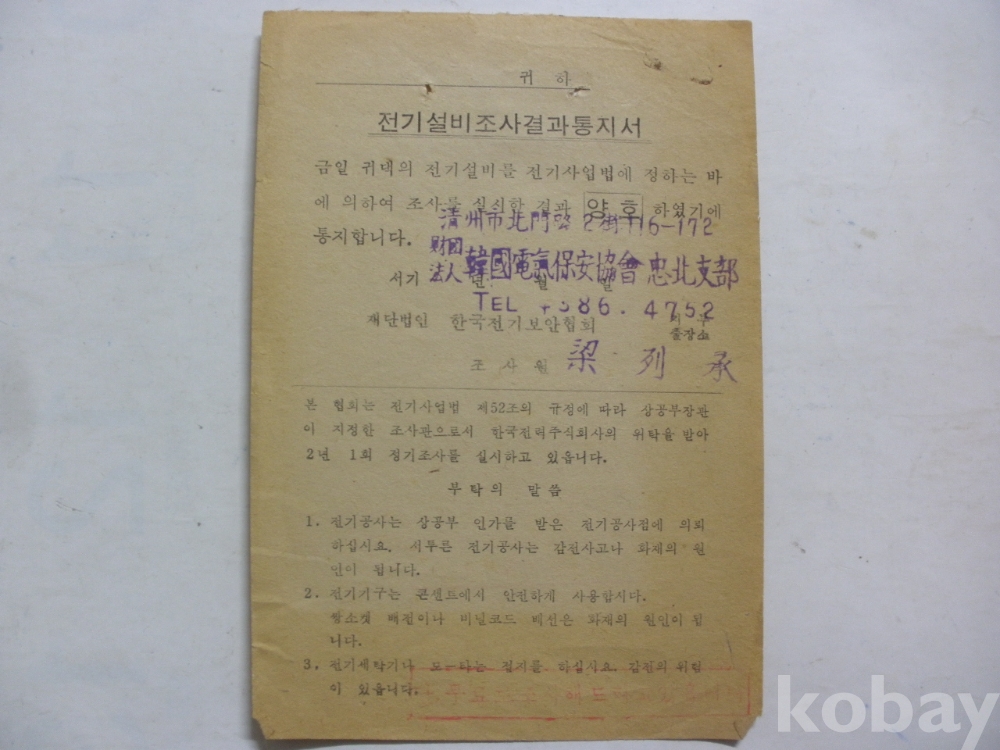 귀 하
전기설비조사결과통지서
금일 귀댁의 전기설비를 전기사업법에 정하는 바
에 의하여 조사를 실시한 결과 양호 하였기에
통지합니다.
淸州市北門路 2街 116-172
財団
法人 韓國電氣保安協會 忠北支部
서기 년 월 일
TEL 386. 4752
재단법인 한국전기보안협회 지부
출장소
조 사 원 梁 列 承
본 협회는 전기사업법 제52조의 규정에 따라 상공부장관
이 지정한 조사관으로서 한국전력주식회사의 위탁을 받아
2년 1회 정기조사를 실시하고 있읍니다.
부 탁 의 말 씀
1. 전기공사는 상공부 인가를 받은 전기공사점에 의뢰
하십시요. 서투른 전기공사는 감전사고나 화재의 원
인이 됩니다.
2. 전기기구는 콘센트에서 안전하게 사용합시다.
쌍소켓 배전이나 비닐코드 배선은 화재의 원인이 됩
니다.
3. 전기세탁기나 모-타는 접지를 하십시요. 감전의 위험
이 있읍니다.
kobay